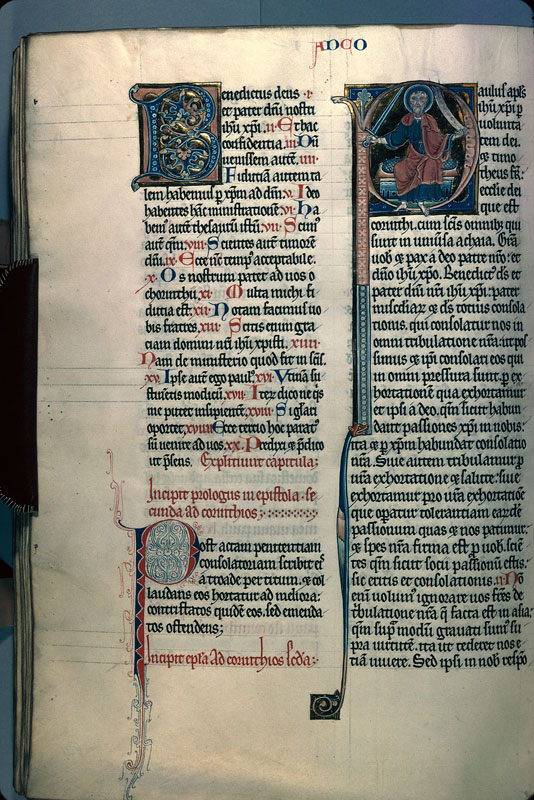 AD CO
Benedictus deus · i ·
et pater dn̄i nostri
ihū xp̄i. ii. Et hac
confidentia. iii. Dū
uenissem autē. iiii.
Fiduciā autem ta
lem habemus p xp̄m ad dm̄. v. Ideo
habentes hāc ministrationē. vi. Ha
bem' autē thesaurū istū. vii. Scim'
autē qm̄. viii. Scientes autē timorē
dn̄i. ix. Ecce nc̄ temp' acceptabile.
x. Os nostrum patet ad uos o
chorinthii. xi. Multa michi fi
ducia est. xii. Notam facimus uo
bis fratres. xiii. Scitis enim gra
ciam domini nr̄i ihū xpisti. xiiii.
Nam de ministerio quod fit in sc̄is.
xv. Ipse autē ego paul'. xvi. Vtinā su
stineretis modicū. xvii. Iterū dico ne q̄s
me putet insipientē. xviii. Si gl'ari
oportet. xviiii. Ecce tertio hoc parat'
sū uenire ad uos. xx. Predixi et p̄dico
ut p̄sens. Expliciunt capitula:
Incipit prologus in epistola. se
cunda ad corinthios:
Post actam penitentiam
consolatoriam scribit ei'
a troade per titum. et col
laudans eos hortatur ad meliora:
contristatos quidē eos. sed emenda
tos ostendens;
Incipit epl'a Ad corinthios scda:
Paulus apl's
ihū xp̄i p
uolunta
tem dei.
et timo
theus fr̄.
ecclie dei
que est
corinthi. cum sc̄is omnib; qui
sunt in uniūsa achaia. Gr̄a
uob et pax a deo patre nr̄o: et
dn̄o ihū xp̄o. Benedict' ds̄ et
pater dn̄i nr̄i ihū xp̄i: pater
mis̄diaꝝ et ds̄ totius consola
tionis. qui consolatur nos in
omni tribulatione nr̄a: ut pos
simus et ip̄i consolari eos qui
in omni pressura sunt. p ex
hortationē qua exhortamur
et ipsi a deo. qm̄ sicut habun
dant passiones xp̄i in nobis:
ita et p xp̄m habundat consolatio
nr̄a. Siue autem tribulamur p
ur̄a exhortatione et salute: siue
exhortamur pro ur̄a exhortatiōe
que opatur tolerantiam earūdē
passionum quas et nos patimur.
et spes nr̄a firma est p uob. sciē
tes qm̄ sicut socii passionū estis:
sic eritis et consolationis. ii. No
enī uolum' ignorare uos fr̄es de
tbulatione nr̄a q̄ facta est in asia:
qm̄ sup modū grauati sum' su
pra uirtutē. ita ut tederet nos e
tiā uiuere. Sed ipsi in nob respō